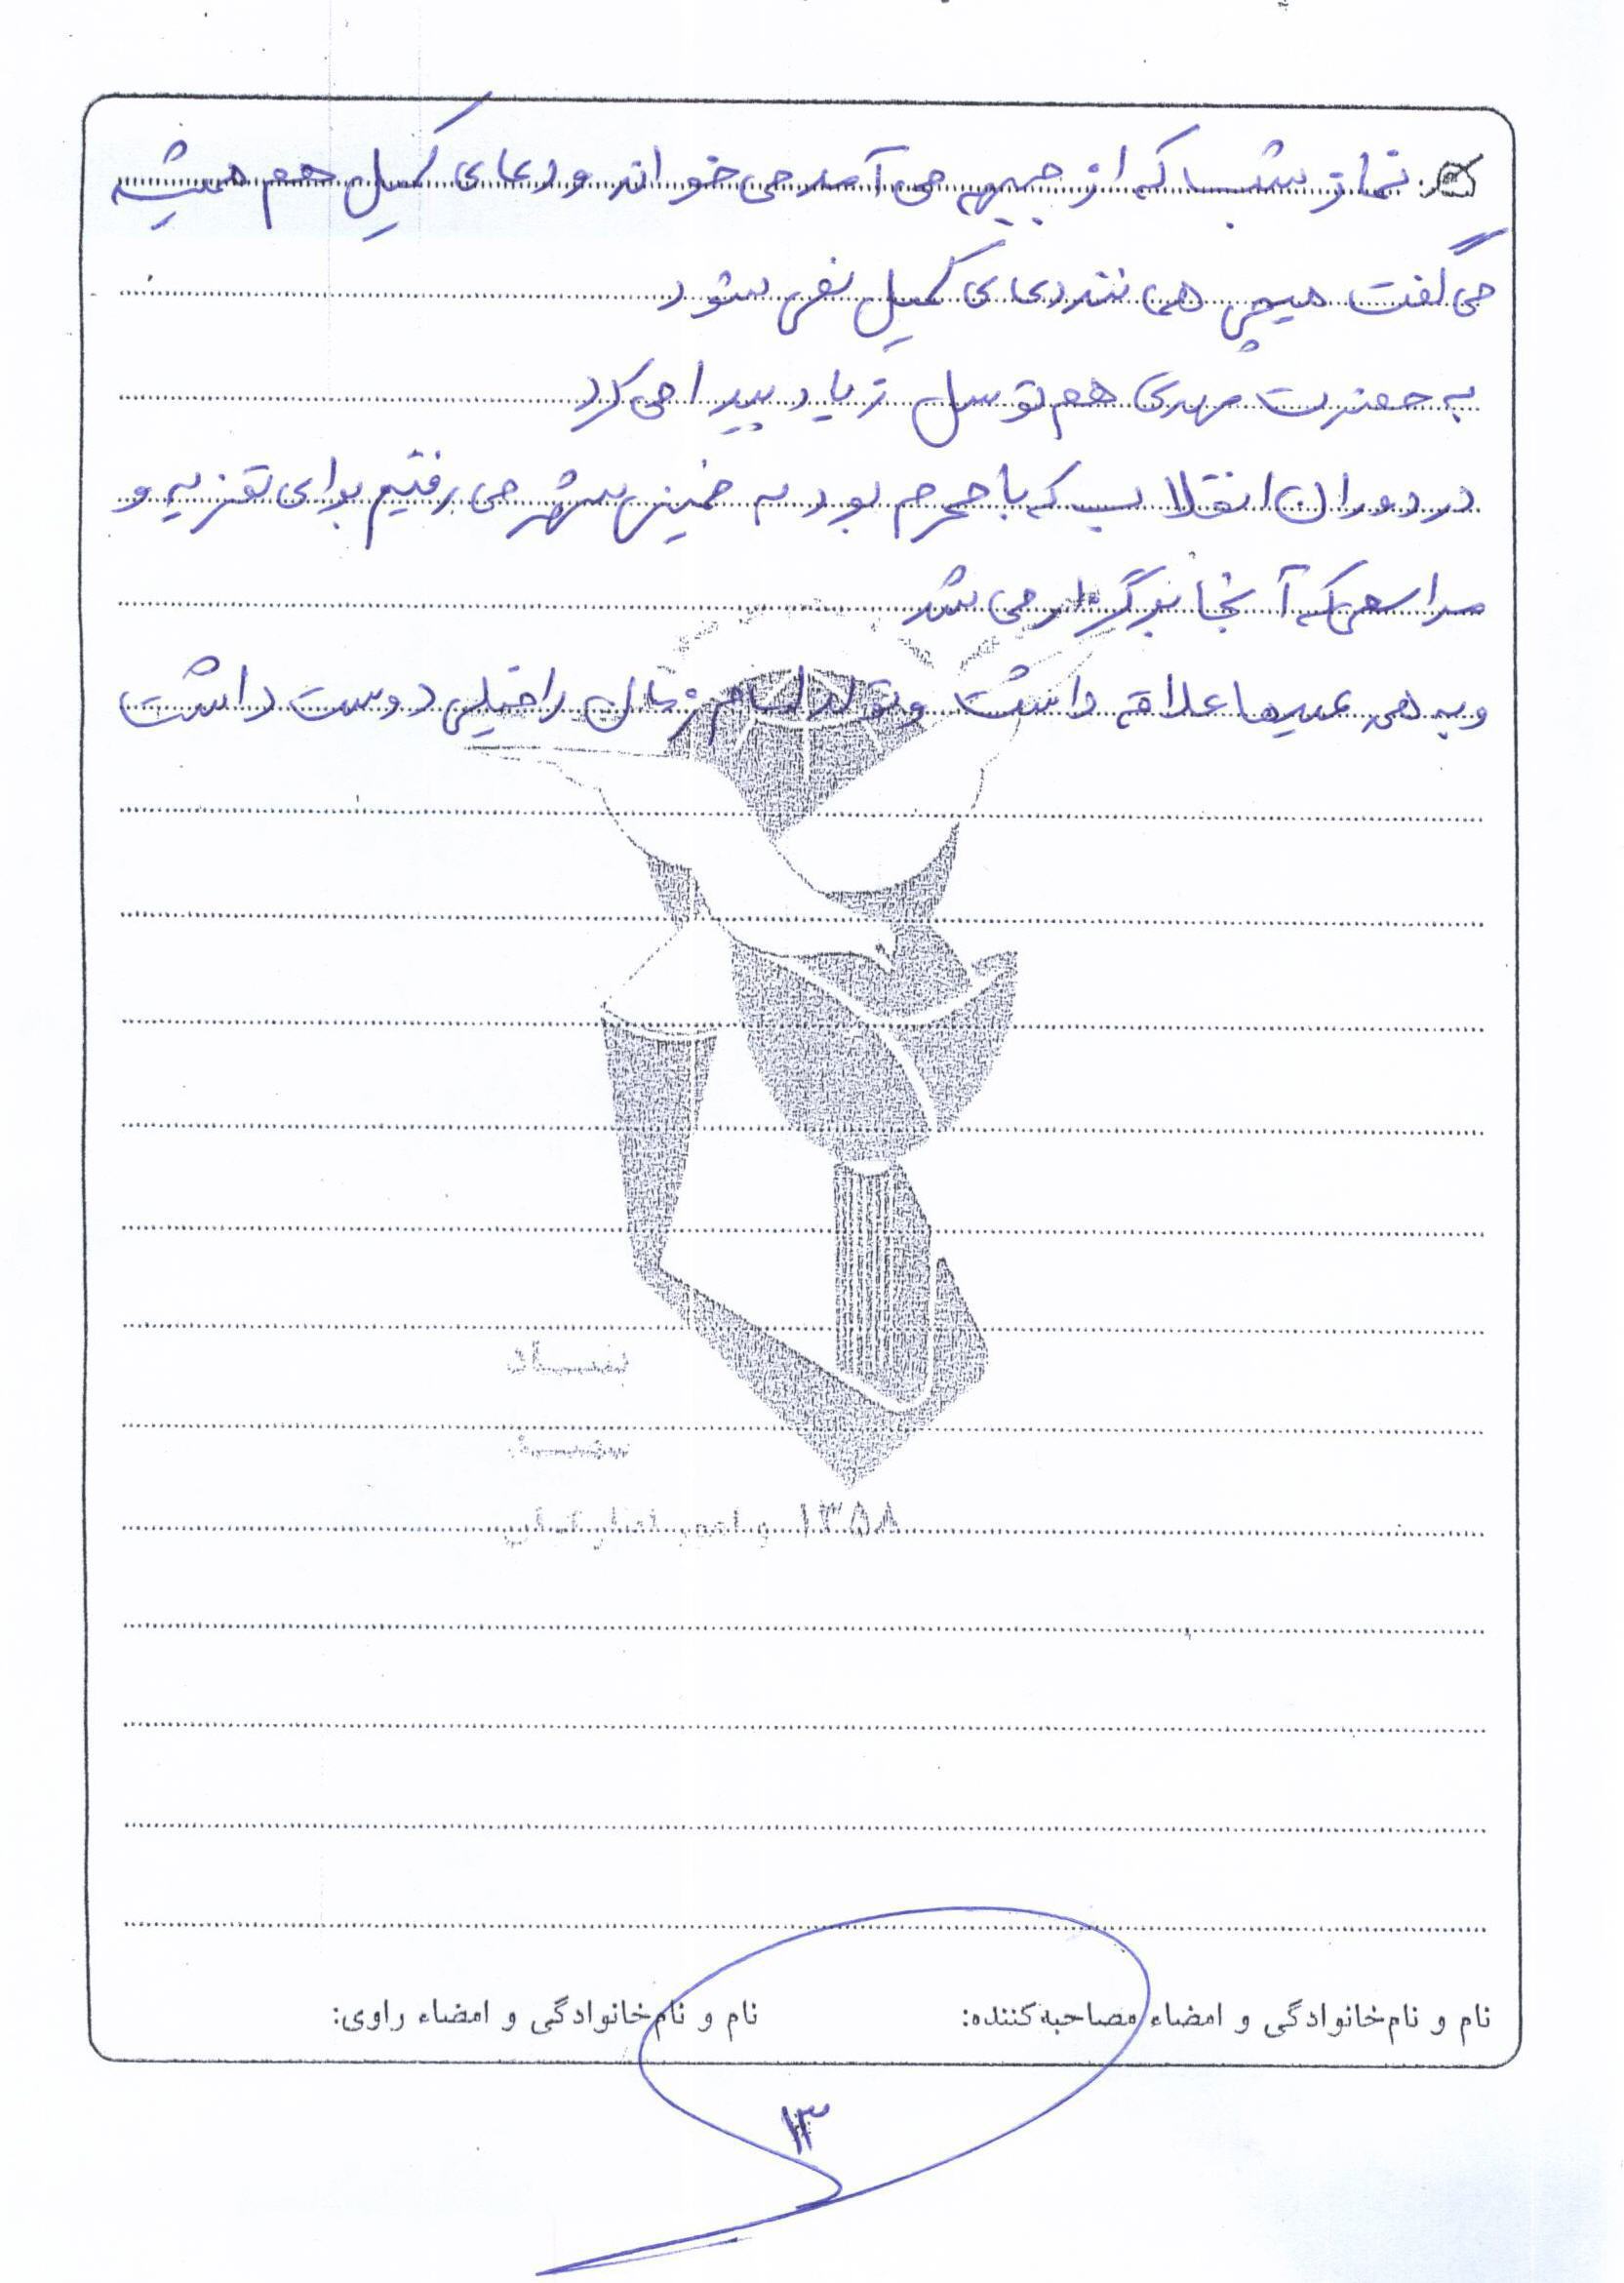 نماز شب که از جبهه می آمد می خواند و دعای کمیل هم همیشه
می گفت هیچی همانند دعای کمیل نمی شود
به حضرت مهدی هم توسل زیاد پیدا می کرد
در دوران انقلاب که با محرم بود به خمینی شهر می رفتیم برای تعزیه و
مراسمی که آنجا برگزار می شد
و به همه عیدها علاقه داشت و تولد امام زمان را خیلی دوست داشت
بنیاد
شهید
۱۳۵۸ و امور ایثارگران
نام و نام‌خانوادگی و امضاء مصاحبه‌کننده: نام و نام‌خانوادگی و امضاء راوی:
۱۳